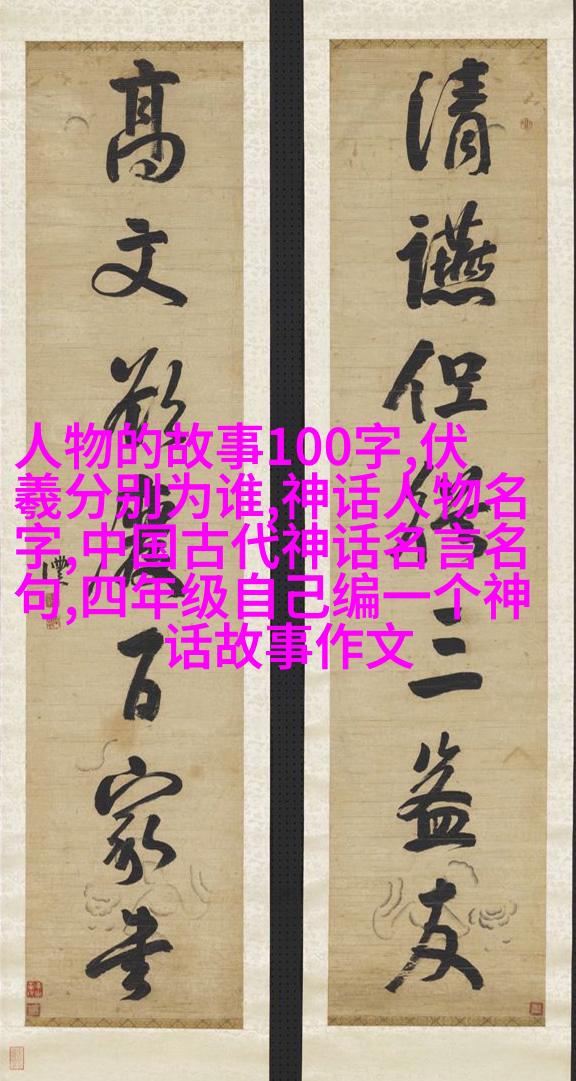 清讌但三益友
高文百家書
人物的故事100字,伏
羲分别为谁,神话人物名
字,中国古代神话名言名
句,四年级自己编一个神
话故事作文